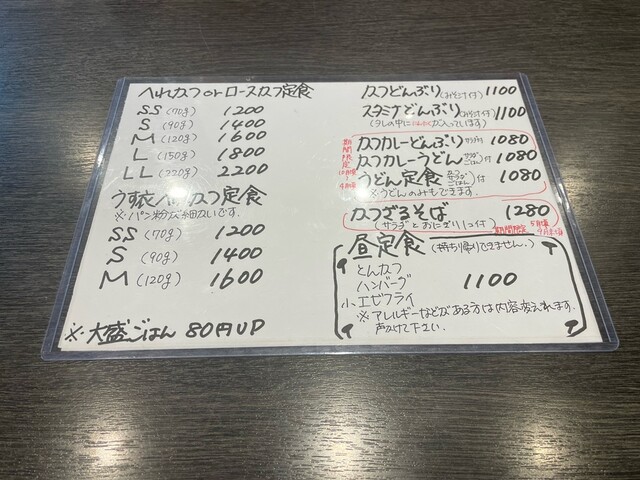 ヘレカツorロースカツ定食
SS(70g) 1200
S(90g) 1400
M(120g) 1600
L(150g) 1800
LL(220g) 2200
うす衣ヘレカツ定食
※パン粉が細かいです。
SS(70g) 1200
S(90g) 1400
M(120g) 1600
※大盛ごはん 80円UP
カツどんぶり(みそ汁付) 1100
スタミナどんぶり(みそ汁付) 1100
(タレの中ににんにくが入っています)
期間限定
カツカレーどんぶり サラダ付 1080
カツカレーうどん サラダごはん付 1080
うどん定食 付 1080
※うどんのみもできます。
カツざるそば 1280
(サラダとおにぎり1つ付) 期間限定
昼定食(持ち帰りできません。)
とんかつ
ハンバーグ 1100
小エビフライ
※アレルギーなどがある方は内容変えれます。
声かけて下さい。